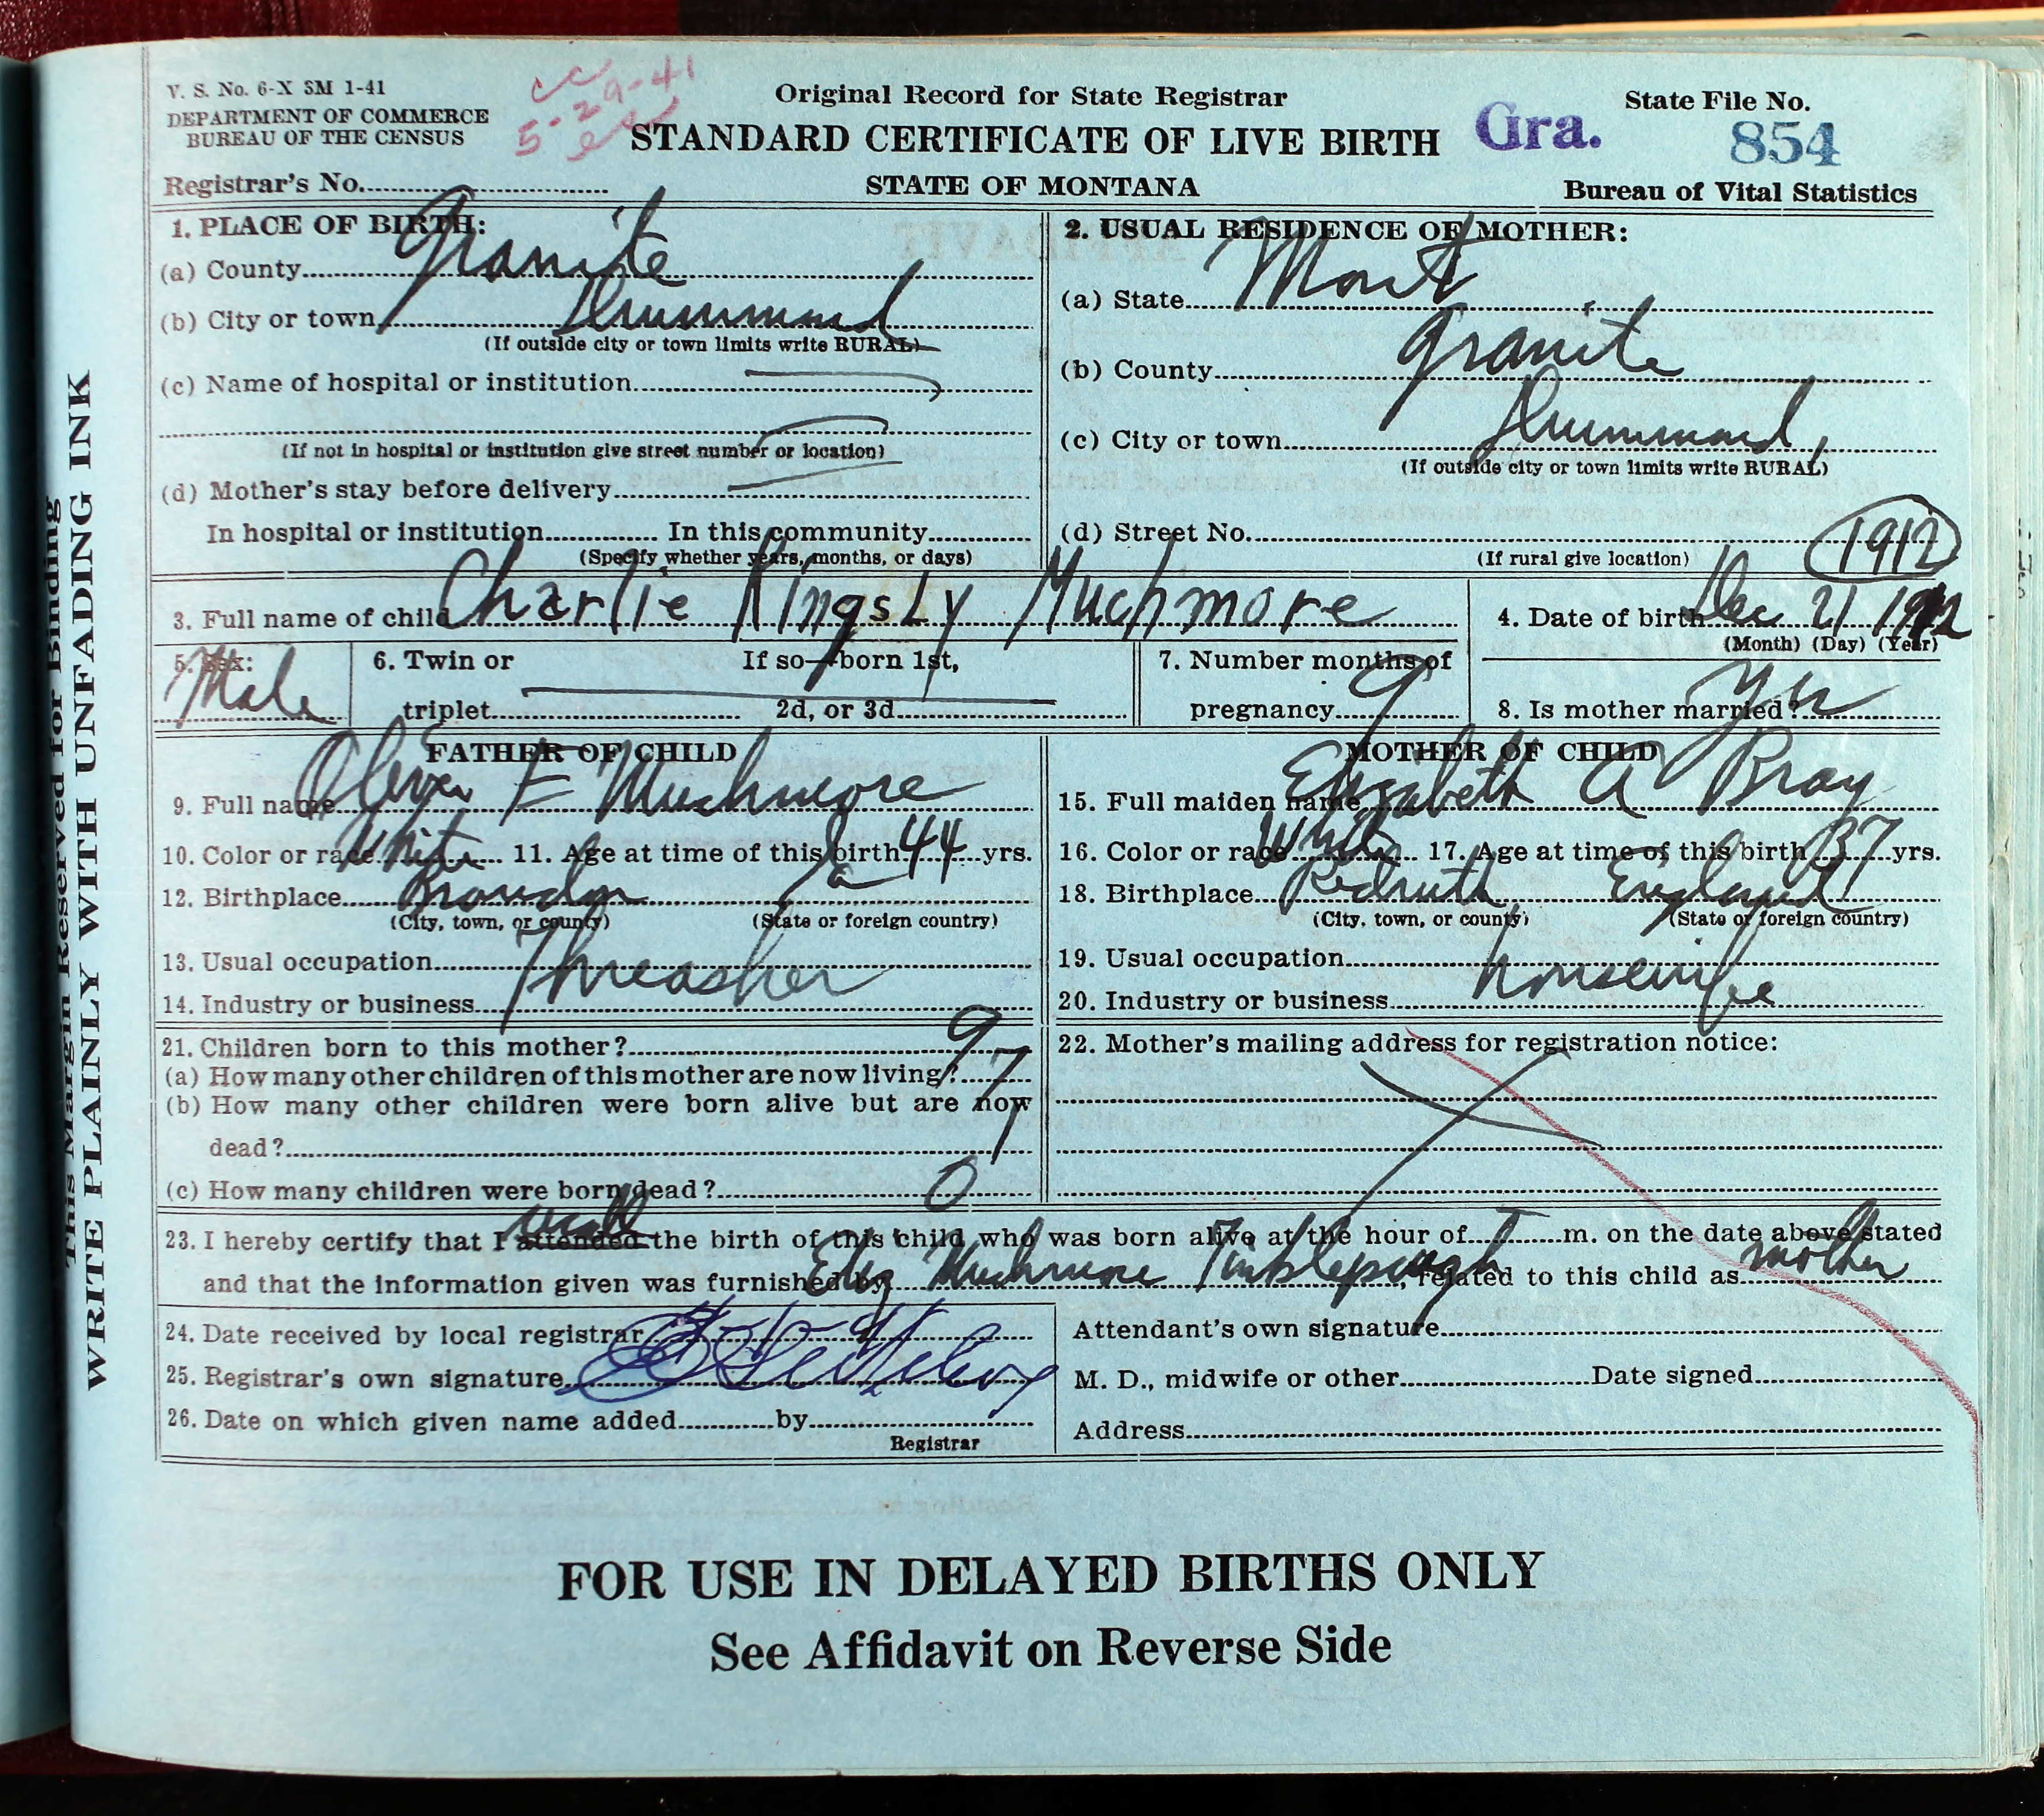 V. S. No. 6-X 3M 1-41
DEPARTMENT OF COMMERCE
BUREAU OF THE CENSUS
5-29-41
Original Record for State Registrar
STANDARD CERTIFICATE OF LIVE BIRTH
STATE OF MONTANA
Gra.
State File No.
854
Bureau of Vital Statistics
Registrar's No.
This Margin Reserved for Binding
WRITE PLAINLY WITH UNFADING INK
1. PLACE OF BIRTH:
(a) County Granite
(b) City or town Drummond
(If outside city or town limits write RURAL)
(c) Name of hospital or institution
(If not in hospital or institution give street number or location)
(d) Mother's stay before delivery
In hospital or institution In this community
(Specify whether years, months, or days)
2. USUAL RESIDENCE OF MOTHER:
(a) State Mont
(b) County Granite
(c) City or town Drummond,
(If outside city or town limits write RURAL)
(d) Street No.
(If rural give location)
1912
3. Full name of child Charlie Kingsly Muchmore
4. Date of birth Dec 21 1912
(Month) (Day) (Year)
5. Sex: Male
6. Twin or triplet If so—born 1st, 2d, or 3d
7. Number months of pregnancy 9
8. Is mother married? Yes
FATHER OF CHILD
9. Full name Oliver F Muchmore
10. Color or race White 11. Age at time of this birth 44 yrs.
12. Birthplace Ia
(City, town, or county) (State or foreign country)
13. Usual occupation Threasher
14. Industry or business
MOTHER OF CHILD
15. Full maiden name Elizabeth A Bray
16. Color or race White 17. Age at time of this birth 37 yrs.
18. Birthplace Redruth, England
(City, town, or county) (State or foreign country)
19. Usual occupation housewife
20. Industry or business
21. Children born to this mother? 9
(a) How many other children of this mother are now living? 7
(b) How many other children were born alive but are now
dead? 1
(c) How many children were born dead? 0
22. Mother's mailing address for registration notice:
23. I hereby certify that I attended recall the birth of this child who was born alive at the hour of m. on the date above stated
and that the information given was furnished by Eliz Muchmore Tinklepaugh, related to this child as mother
24. Date received by local registrar
25. Registrar's own signature
26. Date on which given name added by
Registrar
Attendant's own signature
M. D., midwife or other Date signed
Address
FOR USE IN DELAYED BIRTHS ONLY
See Affidavit on Reverse Side